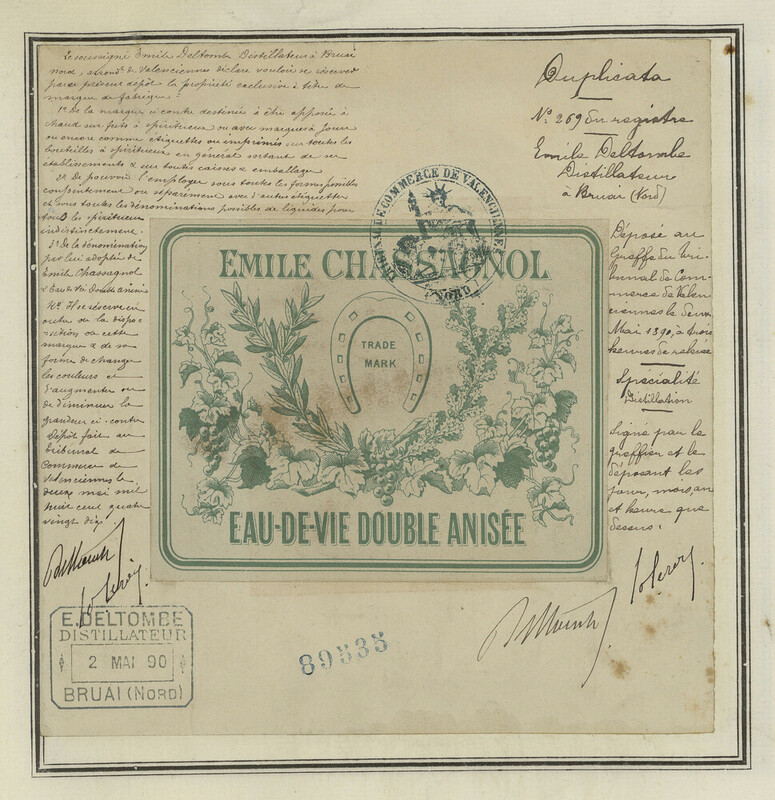 Le soussigné Emile Deltombe Distillateur à Bruai
nord, arrondt de Valenciennes déclare vouloir se réserver
par ce présent dépôt la propriété exclusive à titre de
marque de fabrique:
1º De la marque ci contre destinée à être apposée à
chaud sur fûts à spiritueux ou avec marques à jour
ou encore comme étiquettes ou imprimés sur toutes les
bouteilles à spiritueux en général sortant de ses
établissements & sur toutes caisses & emballage
2º De pouvoir l'employer sous toutes les formes possibles
conjointement ou séparément avec d'autres étiquettes
et sous toutes les dénominations possibles de liquides pour
tous les spiritueux
indistinctement.
3º De la dénomination
par lui adoptée de
Emile Chassagnol
& Eau de Vie Double anisée
4º Il se réserve en
outre de la dispo-
sition de cette
marque & de sa
forme de changer
les couleurs et
d'augmenter ou
de diminuer la
grandeur ci-contre
Dépôt fait au
tribunal de
Commerce de
Valenciennes le
deux mai mil
huit cent quatre
vingt dix.
E. DELTOMBE
DISTILLATEUR
2 MAI 90
BRUAI (NORD)
TRIBUNAL DE COMMERCE DE VALENCIENNES
(NORD)
EMILE CHASSAGNOL
TRADE
MARK
EAU-DE-VIE DOUBLE ANISÉE
89535
Duplicata
Nº 269 du registre
Emile Deltombe
Distillateur
à Bruai (Nord)
Déposé au
Greffe du Tri-
bunal de Com-
merce de Valen-
ciennes le deux
Mai 1890, à trois
heures de relevée
Spécialité
Distillation
Signé par le
greffier et le
déposant les
jour, mois, an
et heure que
dessus.